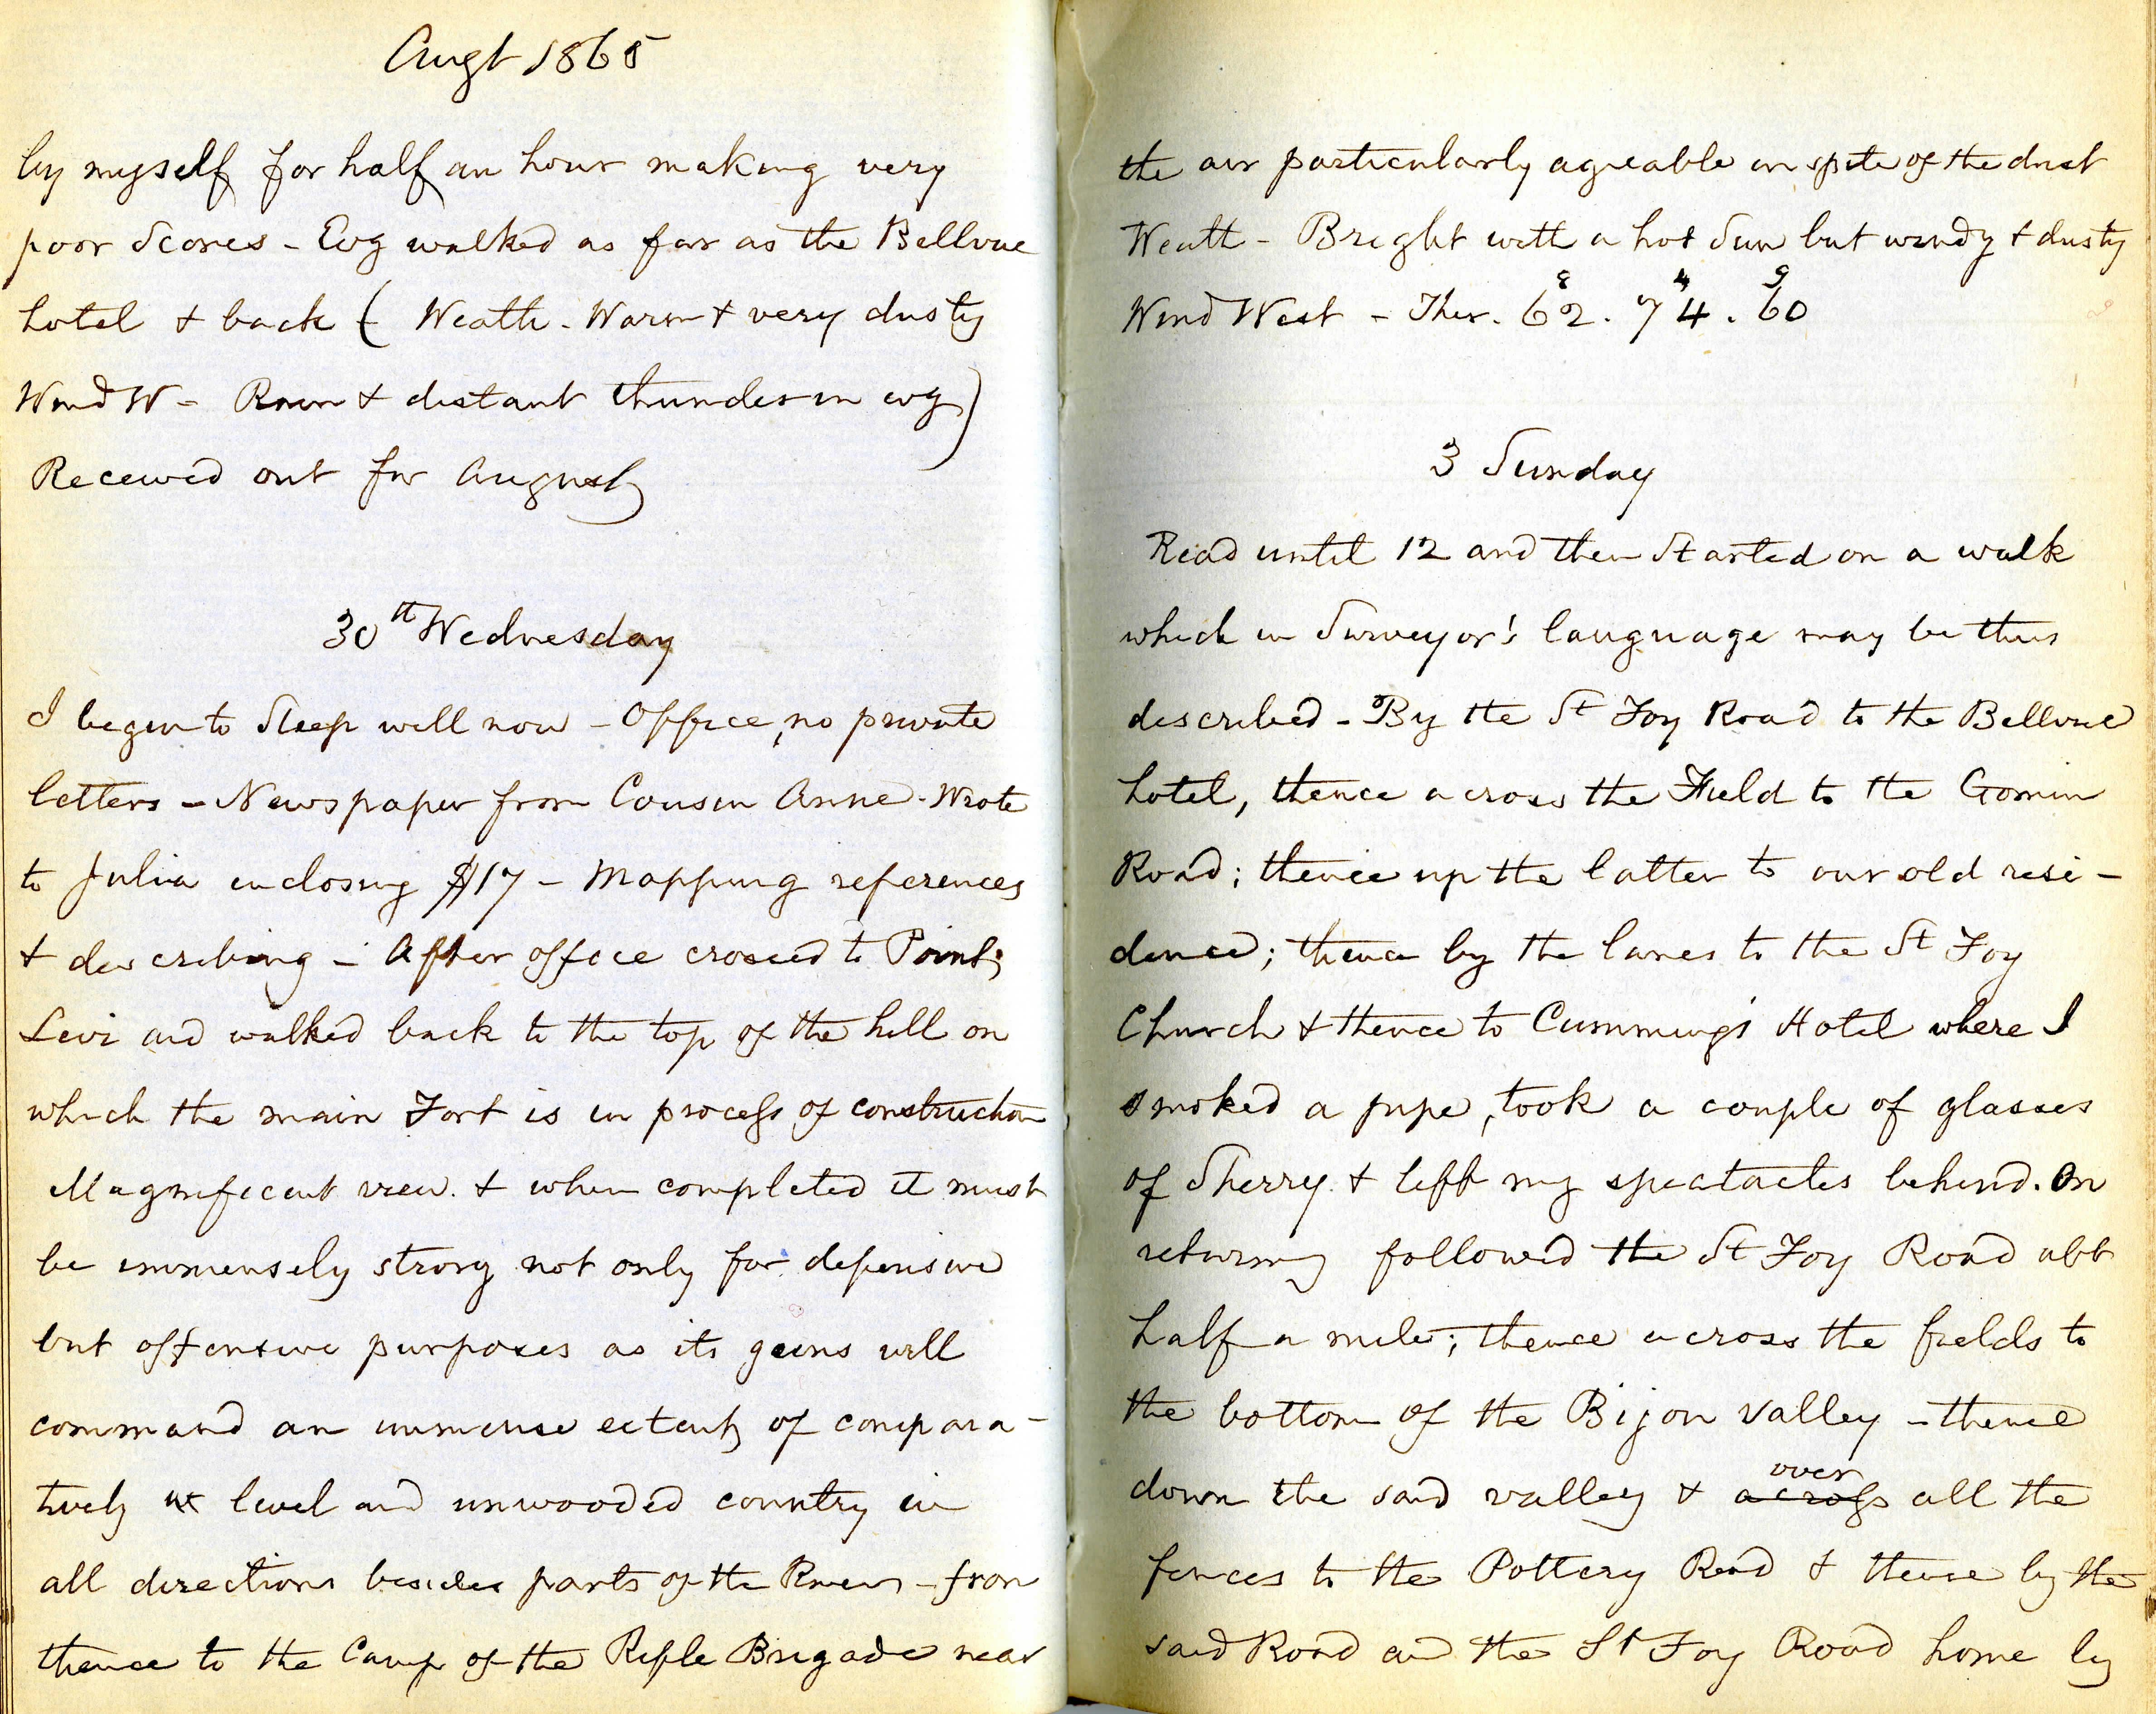 Augt 1865
by myself for half an hour making very
poor Scores - Evg walked as far as the Bellvue
hotel & back ( Weath - Warm & very dusty
Wind W - Rain & distant thunder in evg)
Received out for August
30th Wednesday
I begin to Sleep well now - Office, no private
letters - Newspaper from Cousin Anne - Wrote
to Julia enclosing $17 - Mapping references
& describing - After office crossed to Point
Levi and walked back to the top of the hill on
which the main Fort is in process of construction
Magnificent view. & when completed it must
be immensely strong not only for defensive
but offensive purposes as its guns will
command an immense extent of compara-
tively level and unwooded country in
all directions besides parts of the River - from
thence to the Camp of the Rifle Brigade near
the air particularly agreable in spite of the dust
Weath - Bright with a hot Sun but windy & dusty
8 4 9
Wind West - Ther. 62. 74. 60
3 Sunday
Read until 12 and then Started on a walk
which in Surveyor's language may be thus
described - By the St Foy Road to the Bellvue
hotel, thence across the Field to the Gomin
Road; thence up the latter to our old resi-
dence; thence by the lanes to the St Foy
Church & thence to Cummings' Hotel where I
smoked a pipe, took a couple of glasses
of Sherry & left my spectacles behind. On
returning followed the St Foy Road abt
half a mile; thence across the fields to
the bottom of the Bijou Valley - thence
down the said valley & across over all the
fences to the Pottery Road & thence by the
said Road and the St Foy Road home by